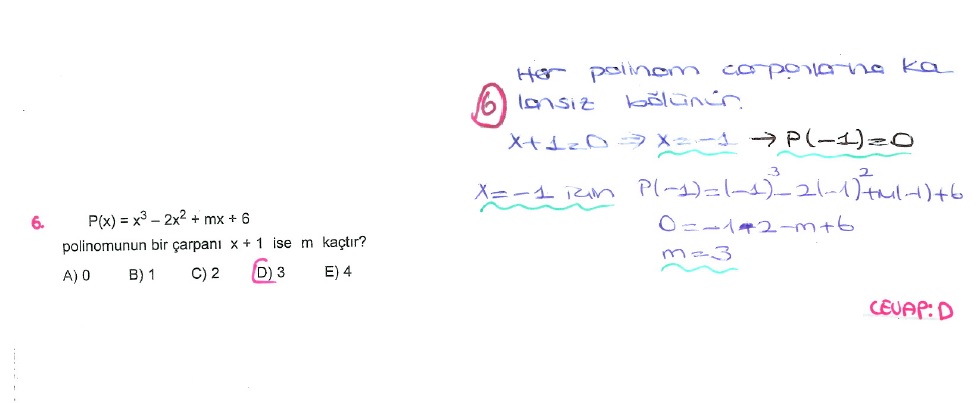 6. P(x) = x³ – 2x² + mx + 6
polinomunun bir çarpanı x + 1 ise m kaçtır?
A) 0 B) 1 C) 2 D) 3 E) 4
Her polinom çarpanlarına ka
6 lansız bölünür.
x+1=0 ⇒ x=-1 → P(-1)=0
x=-1 için P(-1)=(-1)³-2(-1)²+m(-1)+6
0=-1-2-m+6
m=3
CEVAP: D